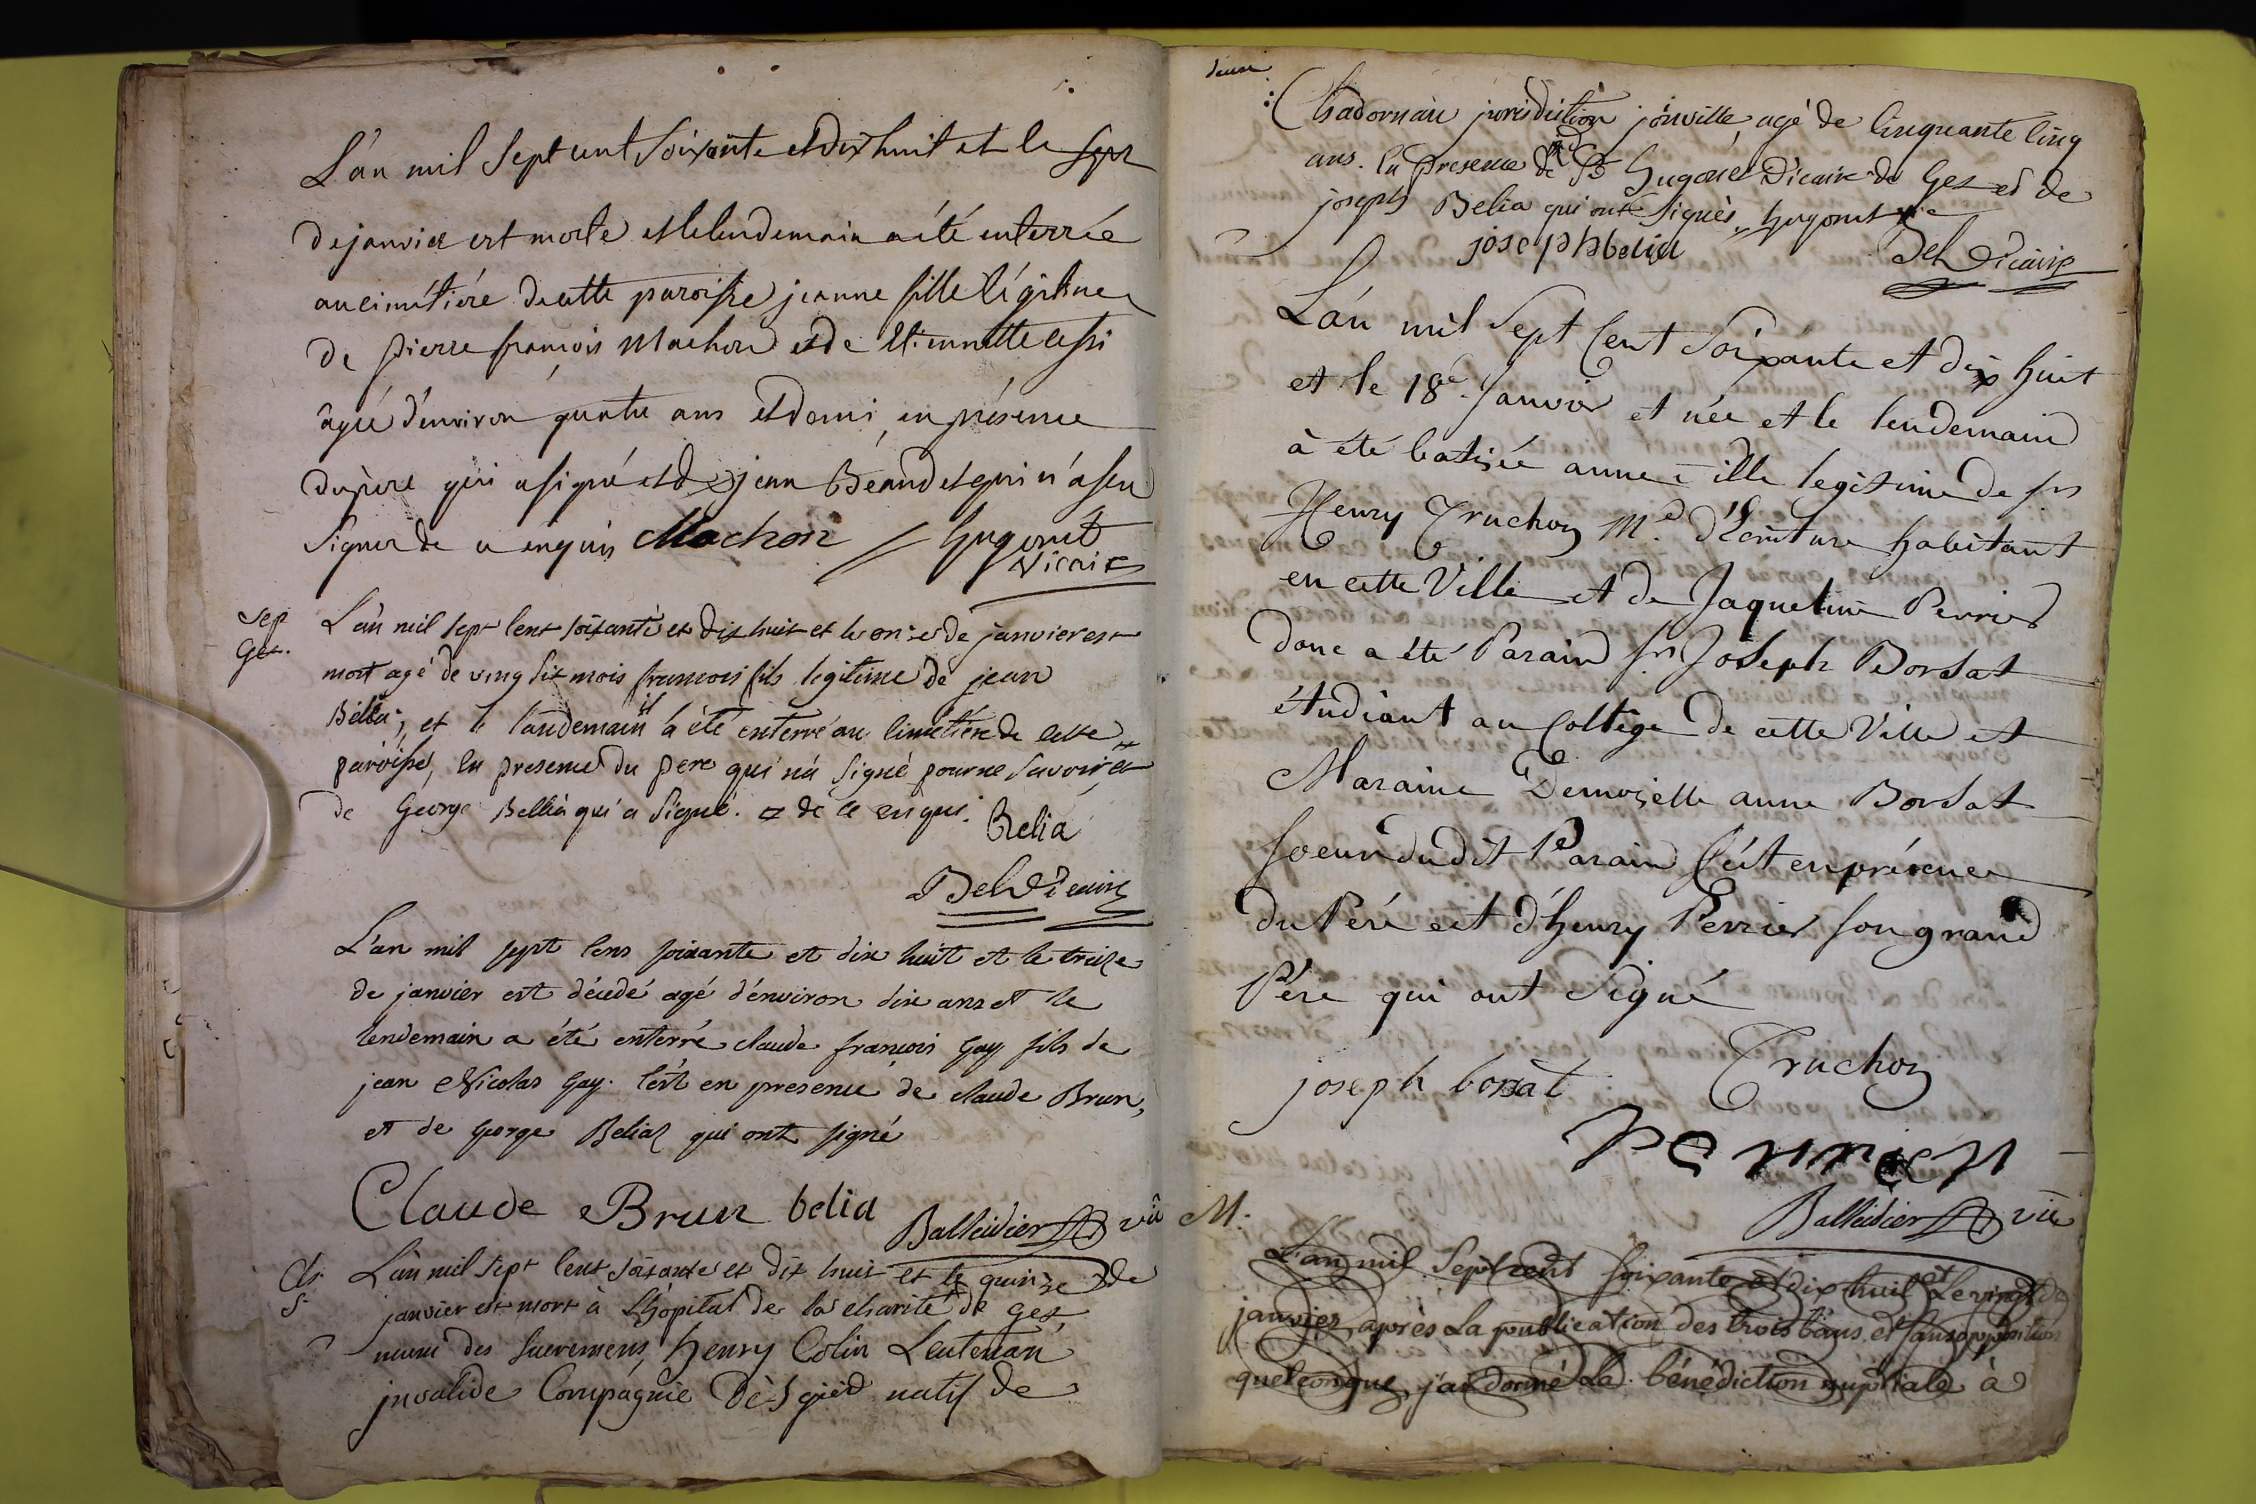 L'an mil sept cent soixante et dix huit et le sept
de janvier est morte et le lendemain a été enterrée
au cimétiére de cette paroisse jeanne fille légitime
de pierre françois Machon et de Etiennette
âgée d'environ quatre ans et demi, en présence
du pere qui a signé et de jean Béandet qui n'a sçu
signer de ce enquis Machon Hugonet
Vicaire
sep
Gex.
L'an mil sept cent soixante et dix huit et le onze de janvier est
mort agé de ving six mois francois fils legitime de jean
Bélia, et le landemain il a été enterré au cimetiere de cette
paroisse, en presence du pere qui n'a signé pour ne savoir, et
de George Bellia qui a signé. de ce enquis. Belia
Bel Vicaire
L'an mil sept cens soixante et dix huit et le treize
de janvier est décedé agé d'environ dix ans et le
lendemain a été enterré claude francois Gay fils de
jean Nicolas Gay. c'est en presence de claude Brun,
et de george Beliaz qui ont signé
Claude Brun belia
Balleidier vic
S.
L'an mil sept cent soixante et dix huit et le quinze de
janvier est mort à L'hopital de la charité de gex,
muni des sacremens, henry Colin Leutenan
invalide Compagnie natif de
deux
Chadornau jurisdiction jonville, agé de cinquante cinq
ans. en presence de Hugonet Vicaire de Gex et de
joseph Belia qui ont signès, hugonet vic
joseph belia Bel Vicaire
L'an mil sept cent soixante et dix huit
et le 18e. Janvier et née et le lendemain
à été batisée anne fille legitime de sr
Henry Truchon Me. d'Ecriture habitant
en cette Ville et de Jaqueline Perrier
donc a été Parain sr Joseph Borsat
étudiant au College de cette Ville et
Maraine Demoiselle anne Borsat
soeur du dit Parain fait en présence
du Péré et d'henry Perrier son grand
Pére qui ont signé
joseph borsat Truchon
perrier
Balleidier vic
M.
L'an mil sept cent soixante et dix huit et le vingt de
janvier, après la publication des trois bans, et sans opposition
quelconque, j'ai donné la bénédiction nuptiale à